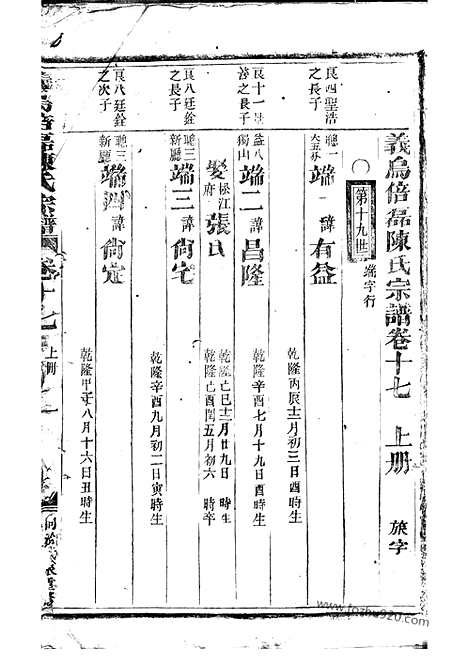 義烏倍磊陳氏宗譜卷十七 上册 旅字
第十九世 端字行
良四聖浩之長子
聰一 端一 諱有益 乾隆丙辰十二月初三日酉時生
良十一 善之長子
益八 獨山 端二 諱昌隆 乾隆辛酉七月十九日酉時生
娶 松江府 張氏 乾隆己巳十二月廿九日 時生
乾隆己酉閏五月初六 時卒
良八廷銓之長子
聰三 新廳 端三 諱尚宅 乾隆辛酉九月初二日寅時生
良八廷銓之次子
聰三 新廳 端四 諱尚定 乾隆甲子八月十六日丑時生
義烏倍磊陳氏宗譜 卷十七 上册
www.fozhu920.com